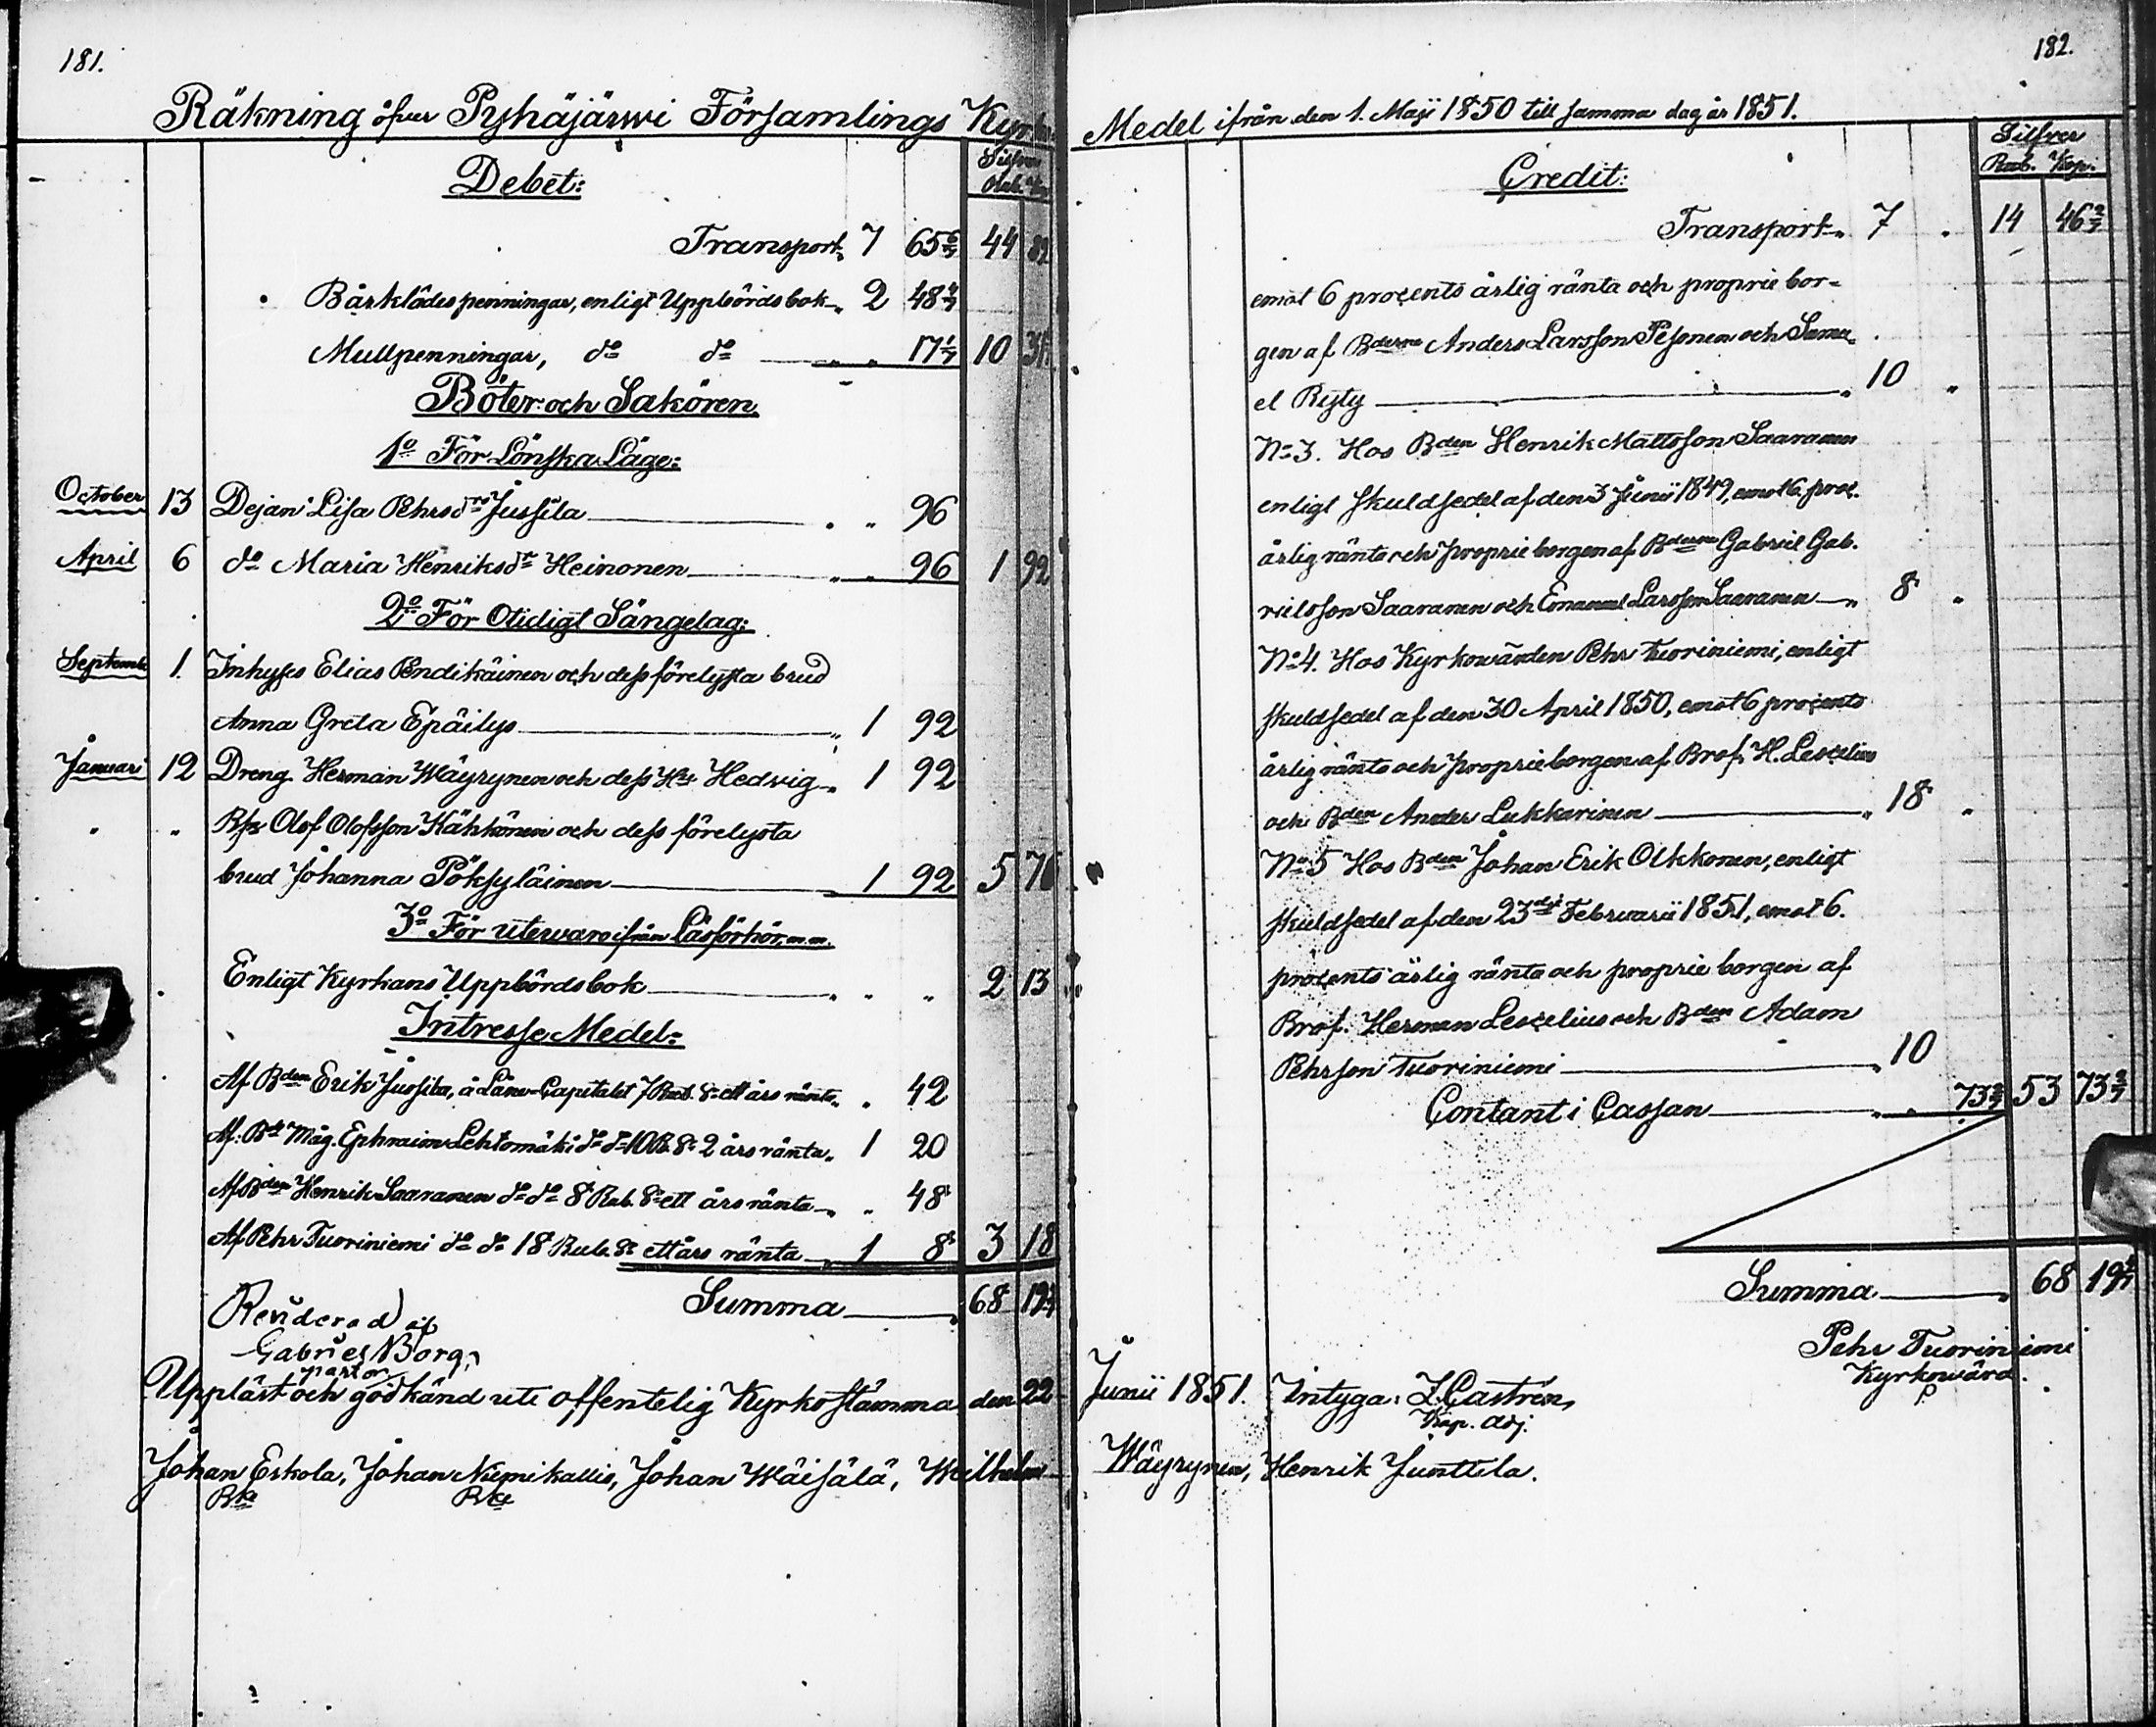 181.
Räkning öfver Pyhäjärwi Församlings Kyrko
Debet:
Silfver
Rub. Kop.
Transport 7 65 6/7 44 82
Bårklädespenningar, enligt Uppbördsbok 2 48 4/7
Mullpenningar, do do 17 1/7 10 31
Böter och Saköron
1o För Lönska Läge:
October 13 Dejan Lisa Pehrsdr Jussila 96
April 6 do Maria Henriksdr Heinonen 96 1 92
2o För Otidigt Sängelag:
September 1. Inhyses Elias Pendikäinen och dess förelysta brud
Anna Greta Epäilys 1 92
Januari 12 Dreng Herman Wäyrynen och dess Hu Hedvig 1 92
" " Olof Olofsson Kähkönen och dess förelysta
brud Johanna Pöksyläinen 1 92 5 76
3o För utewaro ifrån Läsförhör m.m.
Enligt Kyrkans Uppbördsbok " " 2 13
Intresse Medel:
Af Bden Erik Jussila, å Låne-Capitalet 7 Rub. Sr ett års ränta " 42
Af Bde Måg. Ephraim Lehtomäki do do 10 R. Sr 2 års ränta 1 20
Af Bden Henrik Saaranen do do 8 Rub. Sr ett års ränta " 48
Af Pehr Tuoriniemi do do 18 Rub. Sr ett års ränta 1 8 3 18
Summa 68 19 2/7
Reviderad af
Gabriel Borg,
pastor
Uppläst och godkänd uti offentelig Kyrkostämma den 22
Johan Eskola, Johan Niemikallio, Johan Wäisälä, Weilhelm
182.
Medel ifrån den 1. Maji 1850 till samma dag år 1851.
Credit:
Silfver
Rub. Kop.
Transport 7 " 14 46 2/7
emot 6 procents årlig ränta och proprie bor-
gen af Bderne Anders Larsson Pesonen och Samu-
el Ryty 10 "
No 3. Hos Bden Henrik Mattsson Saaranen
enligt skuldsedel af den 3 Junii 1849, emot 6 proc.
årlig ränta och proprie borgen af Bderne Gabriel Gab-
rielsson Saaranen och Emanuel Larsson Saaranen 8 "
No 4. Hos Kyrkowärden Pehr Tuoriniemi, enligt
skuldsedel af den 30 April 1850, emot 6 procents
årlig ränta och proprie borgen af Brof. H. Lescelius
och Bden Anders Lukkarinen 18 "
No 5 Hos Bden Johan Erik Olkkonen, enligt
skuldsedel af den 23dje Februarii 1851, emot 6.
procents årlig ränta och proprie borgen af
Brof. Herman Lescelius och Bden Adam
Pehrsson Tuoriniemi 10
Contant i Cassan " 73 2/7 53 73 2/7
Summa 68 19 4/7
Pehr Tuoriniemi
Kyrkowärd.
Junii 1851. Intyga: Z. Castrén,
Kap. adj.
Wäyrynen, Henrik Junttila.